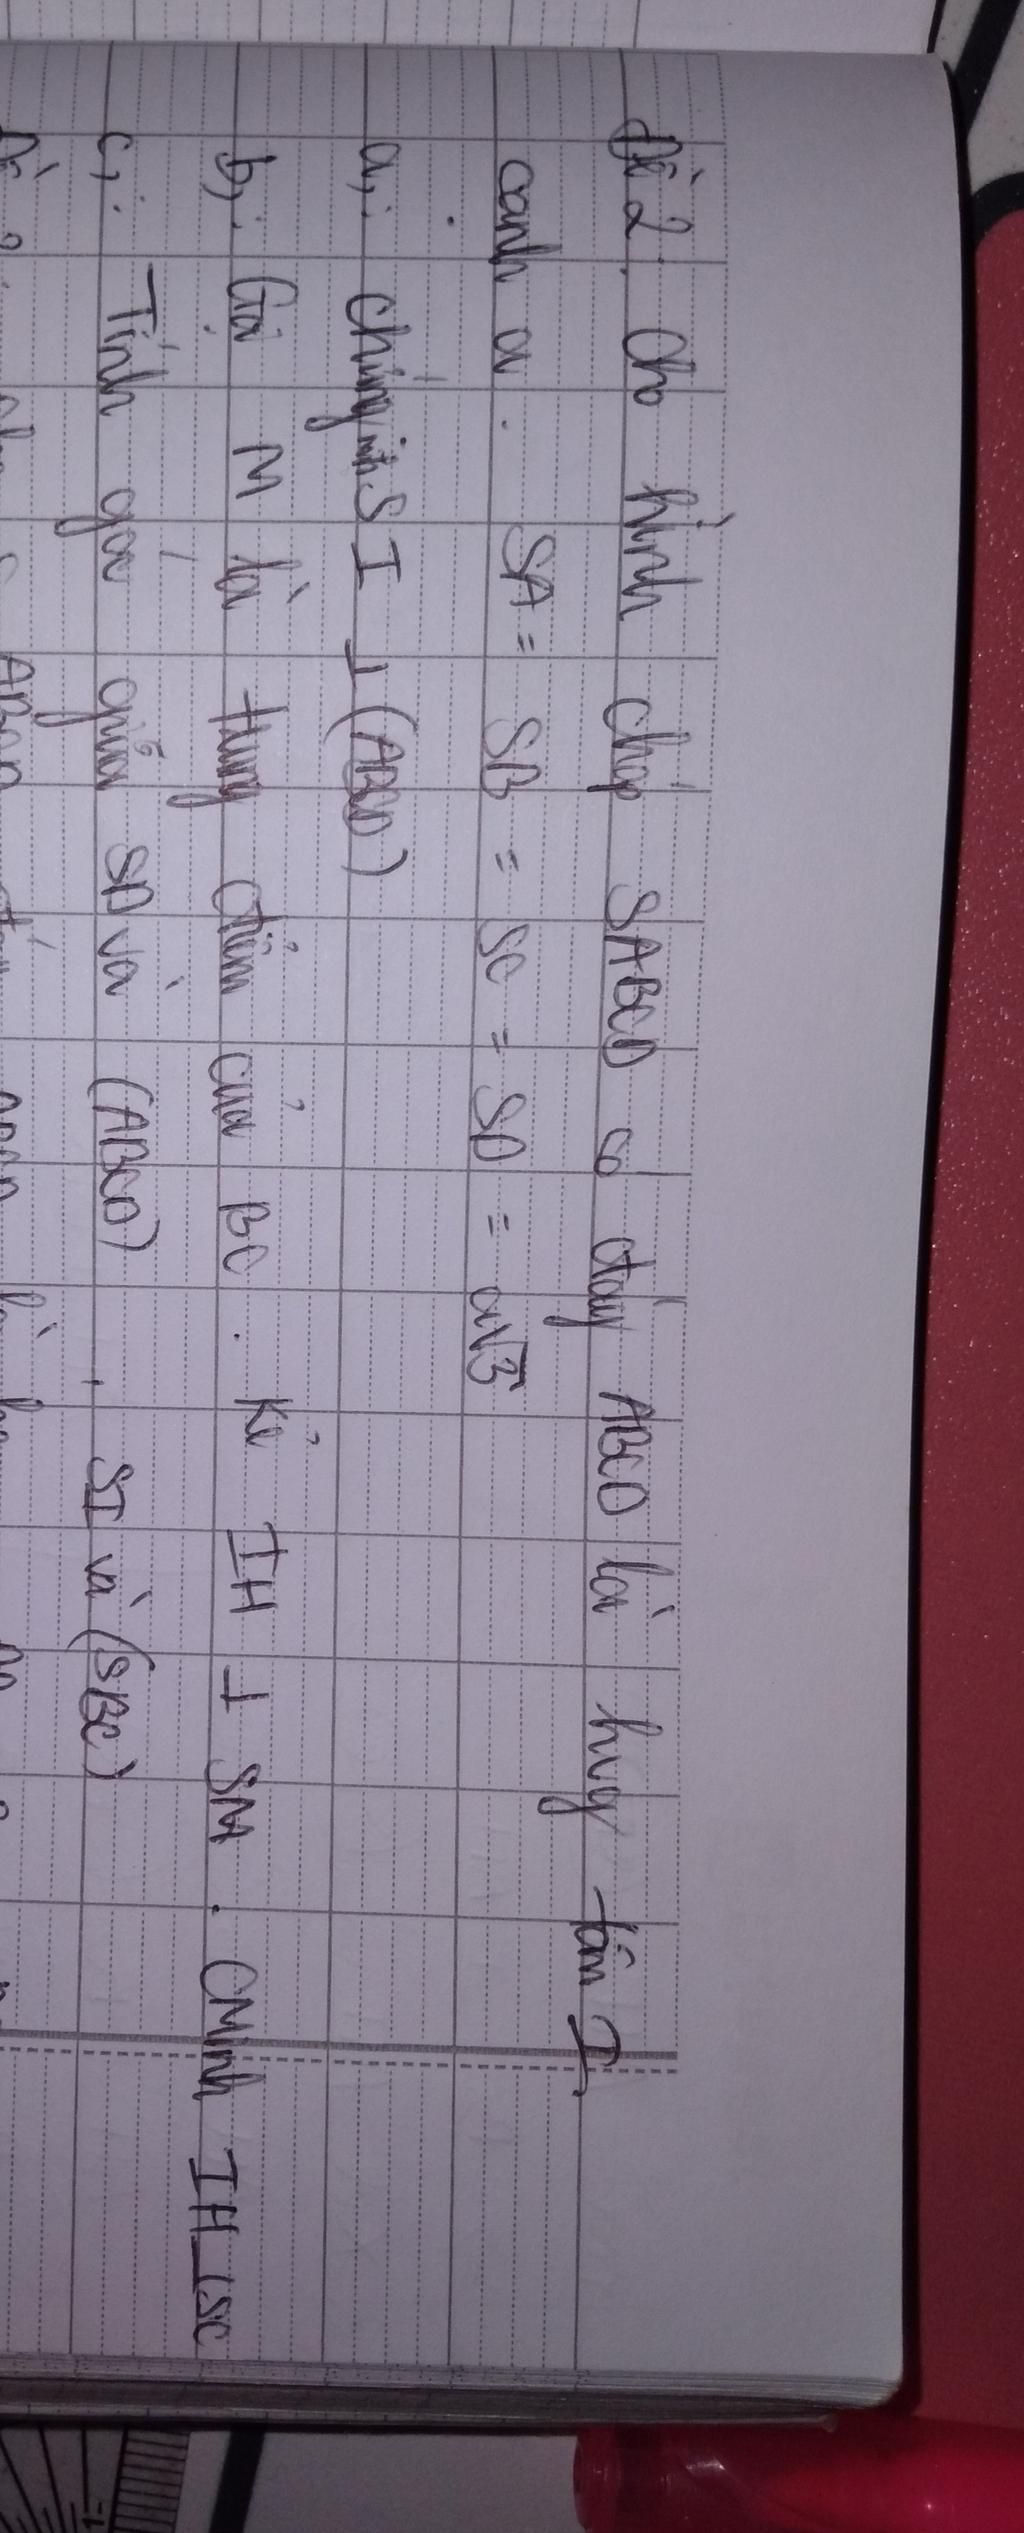 Đề 2: Cho hình chóp SABCD có đáy ABCD là hvg tâm I,
cạnh a. SA = SB = SC = SD = a√3
a, : Chứng minh SI ⊥ (ABCD)
b, : Gọi M là trung điểm của BC. Kẻ IH ⊥ SM. CMinh IH ⊥ SC
c, : Tính góc giữa SD và (ABCD), SI và (SBC)